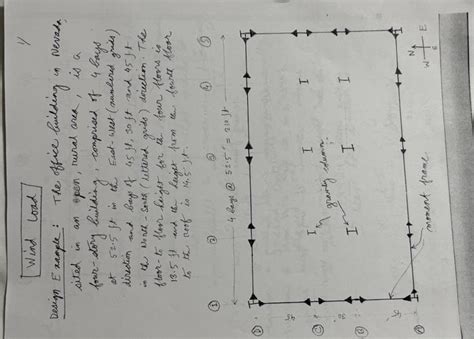 Wind Load
Design Example: The office building in Nevada,
sited in an open, rural area, is a
four-story building, comprised of 4 bays
at 52.5 ft in the East-West (numbered grids)
direction and bays of 45 ft, 30 ft and 45 ft
in the North-South (lettered grids) direction. The
floor-to floor height for the four floors is
13.5 ft and the height from the fourth floor
to the roof is 14.5 ft.
① ② ③ ④ ⑤
4 bays @ 52.5' = 210 ft
gravity column
moment frame
N
W E